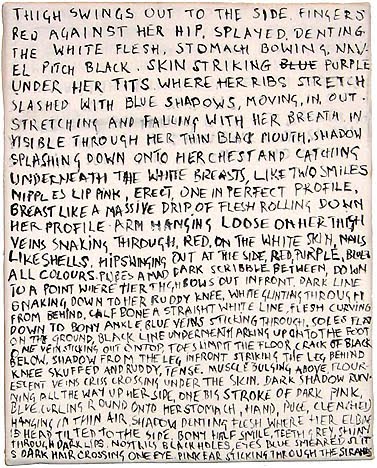 THIGH SWINGS OUT TO THE SIDE. FINGERS
RED AGAINST HER HIP, SPLAYED, DENTING
THE WHITE FLESH, STOMACH BOWING, NAV-
EL PITCH BLACK. SKIN STRIKING BLUE PURPLE
UNDER HER TITS WHERE HER RIBS STRETCH
SLASHED WITH BLUE SHADOWS, MOVING, IN, OUT.
STRETCHING AND FALLING WITH HER BREATH IN
VISIBLE THROUGH HER THIN BLACK MOUTH, SHADOW
SPLASHING DOWN ONTO HER CHEST AND CATCHING
UNDERNEATH THE WHITE BREASTS, LIKE TWO SMILES
NIPPLES LIP PINK, ERECT, ONE IN PERFECT PROFILE,
BREAST LIKE A MASSIVE DRIP OF FLESH ROLLING DOWN
HER PROFILE. ARM HANGING LOOSE ON HER THIGH
VEINS SNAKING THROUGH, RED, ON THE WHITE SKIN, NAILS
LIKE SHELLS. HIP SWINGING OUT AT THE SIDE, RED, PURPLE, BLUE
ALL COLOURS. PUBES A MAD DARK SCRIBBLE BETWEEN, DOWN
TO A POINT WHERE HER THIGH BOWS OUT INFRONT. DARK LINE
SNAKING DOWN TO HER RUDDY KNEE, WHITE GLINTING THROUGH
FROM BEHIND, CALF BONE A STRAIGHT WHITE LINE. FLESH CURVING
DOWN TO BONY ANKLE, BLUE VEINS STICKING THROUGH, SOLES FLAT
ON THE GROUND, BLACK LINE UNDERNEATH ARCING UP ONTO THE FOOT
ONE VEIN STICKING OUT ON TOP. TOES LIMP IT THE FLOOR, CRACK OF BLACK
BELOW. SHADOW FROM THE LEG INFRONT STRIKING THE LEG BEHIND
KNEE SKUFFED AND RUDDY, TENSE. MUSCLE BULGING ABOVE FLOUR-
ESCENT VEINS CRISS CROSSING UNDER THE SKIN. DARK SHADOW RUN-
NING ALL THE WAY UP HER SIDE, ONE BIG STROKE OF DARK PINK,
BLUE, CURLING ROUND ONTO HER STOMACH, HAND, PUCE, CLENCHED
HANGING IN THIN AIR, SHADOW DENTING FLESH WHERE HER ELBOW
IS HEAD TILTED TO THE SIDE. BONY HALF SMILE, TEETH GREY, SHINY
THROUGH DARK LIPS. NOSTRILS BLACK HOLES, EYES BLUE SMEARED
DARK HAIR CROSSING ONE EYE. PINK EAR STICKING THROUGH THE